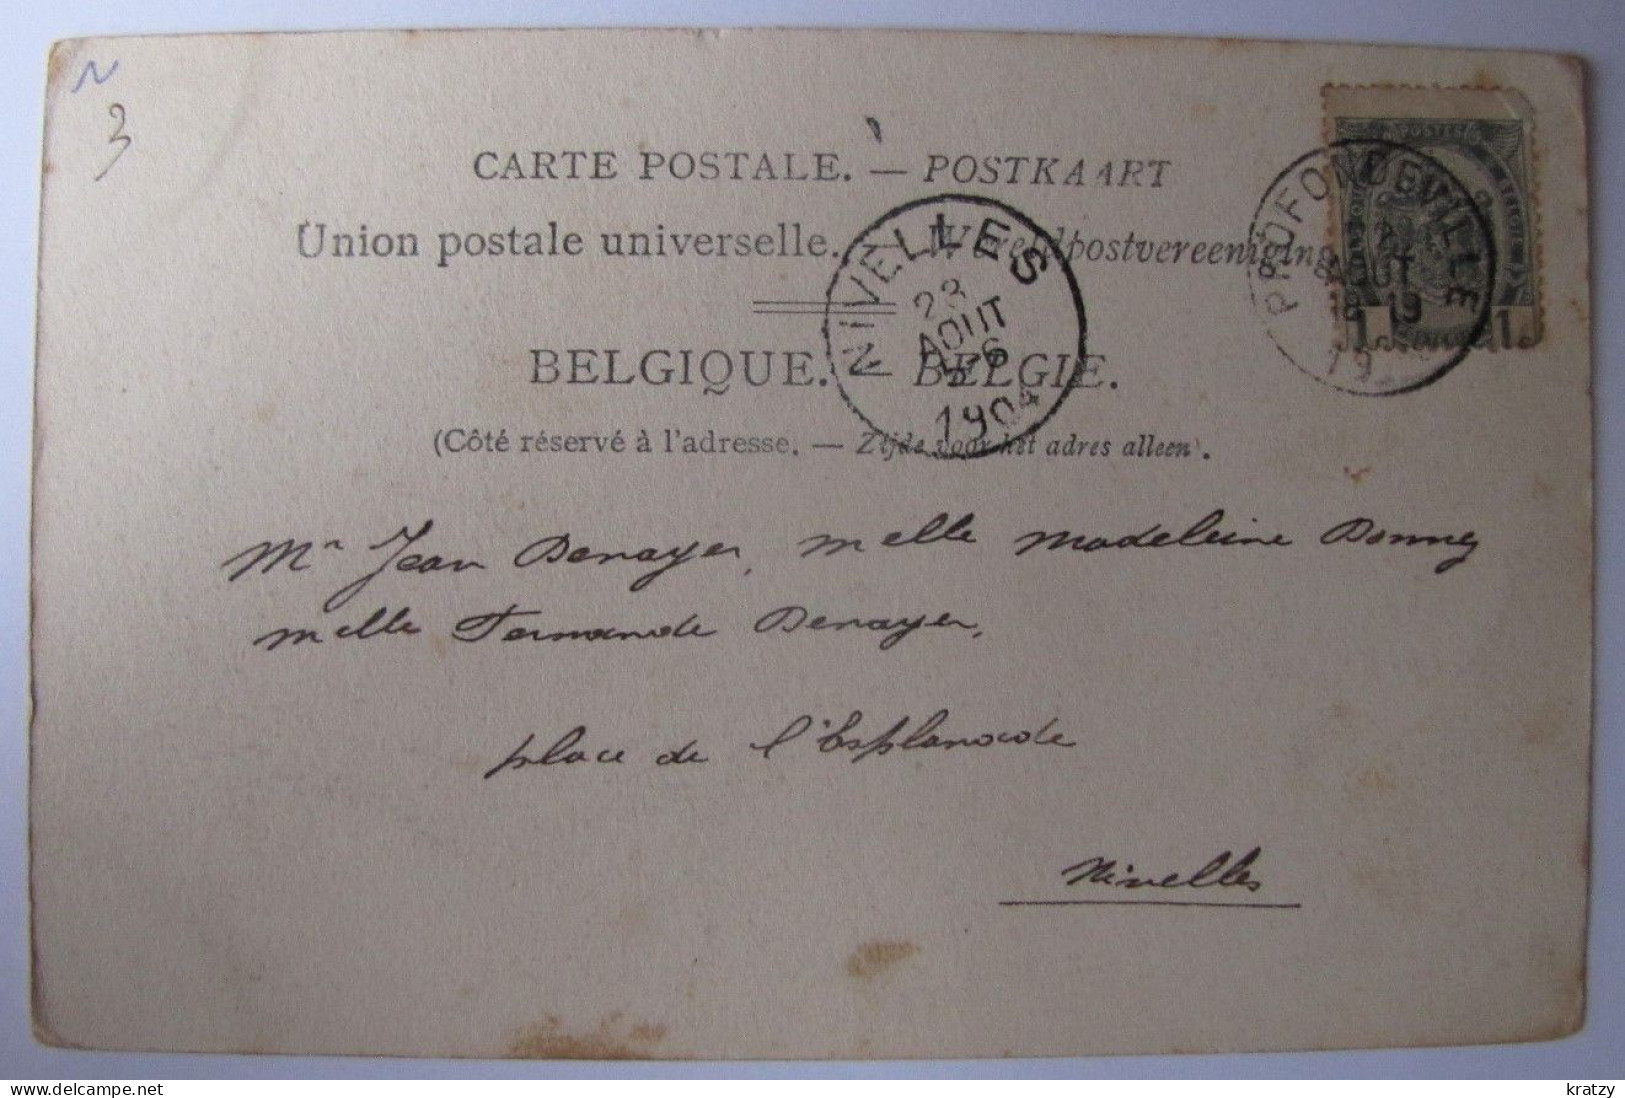 N
3
CARTE POSTALE. — POSTKAART
Union postale universelle. — Wereldpostvereeniging
BELGIQUE. — BELGIE.
(Côté réservé à l'adresse. — Zijde voor het adres alleen).
POSTES
BELGIQUE
1c 1c
PROFONDEVILLE
AOUT
18-19
NIVELLES
23
AOUT
1904
Mr Jean Denayer, Melle Madeleine Donney
Melle Fernande Denayer,
place de l'Esplanade
Nivelles
www.delcampe.net
kratzy